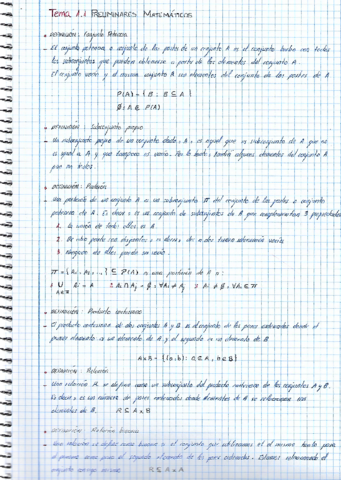 Tema 1.1 PRELIMINARES MATEMÁTICOS
DEFINICIÓN: Conjunto Potencia
El conjunto potencia o conjunto de las partes de un conjunto A es el conjunto formado por todos
los subconjuntos que pueden obtenerse a partir de los elementos del conjunto A.
El conjunto vacío y el mismo conjunto A son elementos del conjunto de las partes de A
P(A) = { B : B ⊆ A }
∅; A ∈ P(A)
DEFINICIÓN: Subconjunto propio
Un subconjunto propio de un conjunto dado, A, es aquel que es subconjunto de A que no
es igual a A y que tampoco es vacío. Por lo tanto, tendrá algunos elementos del conjunto A
pero no todos.
DEFINICIÓN: Partición
Una partición de un conjunto A es un subconjunto Π del conjunto de las partes o conjunto
potencia de A. Es decir, es un conjunto de subconjuntos de A que cumplen 3 propiedades
1. La unión de todos ellos es A.
2. De dos en dos son disjuntos, es decir, dos a dos tienen intersección vacía
3. Ninguno de ellos puede ser vacío.
Π = {A₁, A₂, ...} ⊆ P(A) es una partición de A si:
1. ∪ Ai = A 2. Ai ∩ Aj = ∅, ∀Ai ≠ Aj 3. Ai ≠ ∅, ∀Ai ∈ Π
DEFINICIÓN: Producto cartesiano
El producto cartesiano de dos conjuntos A y B es el conjunto de los pares ordenados donde el
primer elemento es un elemento de A y el segundo es un elemento de B
A×B = {(a,b): a ∈ A, b ∈ B}
DEFINICIÓN: Relación
Una relación R se define como un subconjunto del producto cartesiano de los conjuntos A y B.
Es decir, es un conjunto de pares ordenados donde elementos de A se relacionan con
elementos de B. R ⊆ A × B
DEFINICIÓN: Relación binaria
Una relación se define como binaria si el conjunto que utilizamos es el mismo tanto para
el primero como para el segundo elemento de los pares ordenados. Estamos relacionando el
conjunto consigo mismo R ⊆ A × A